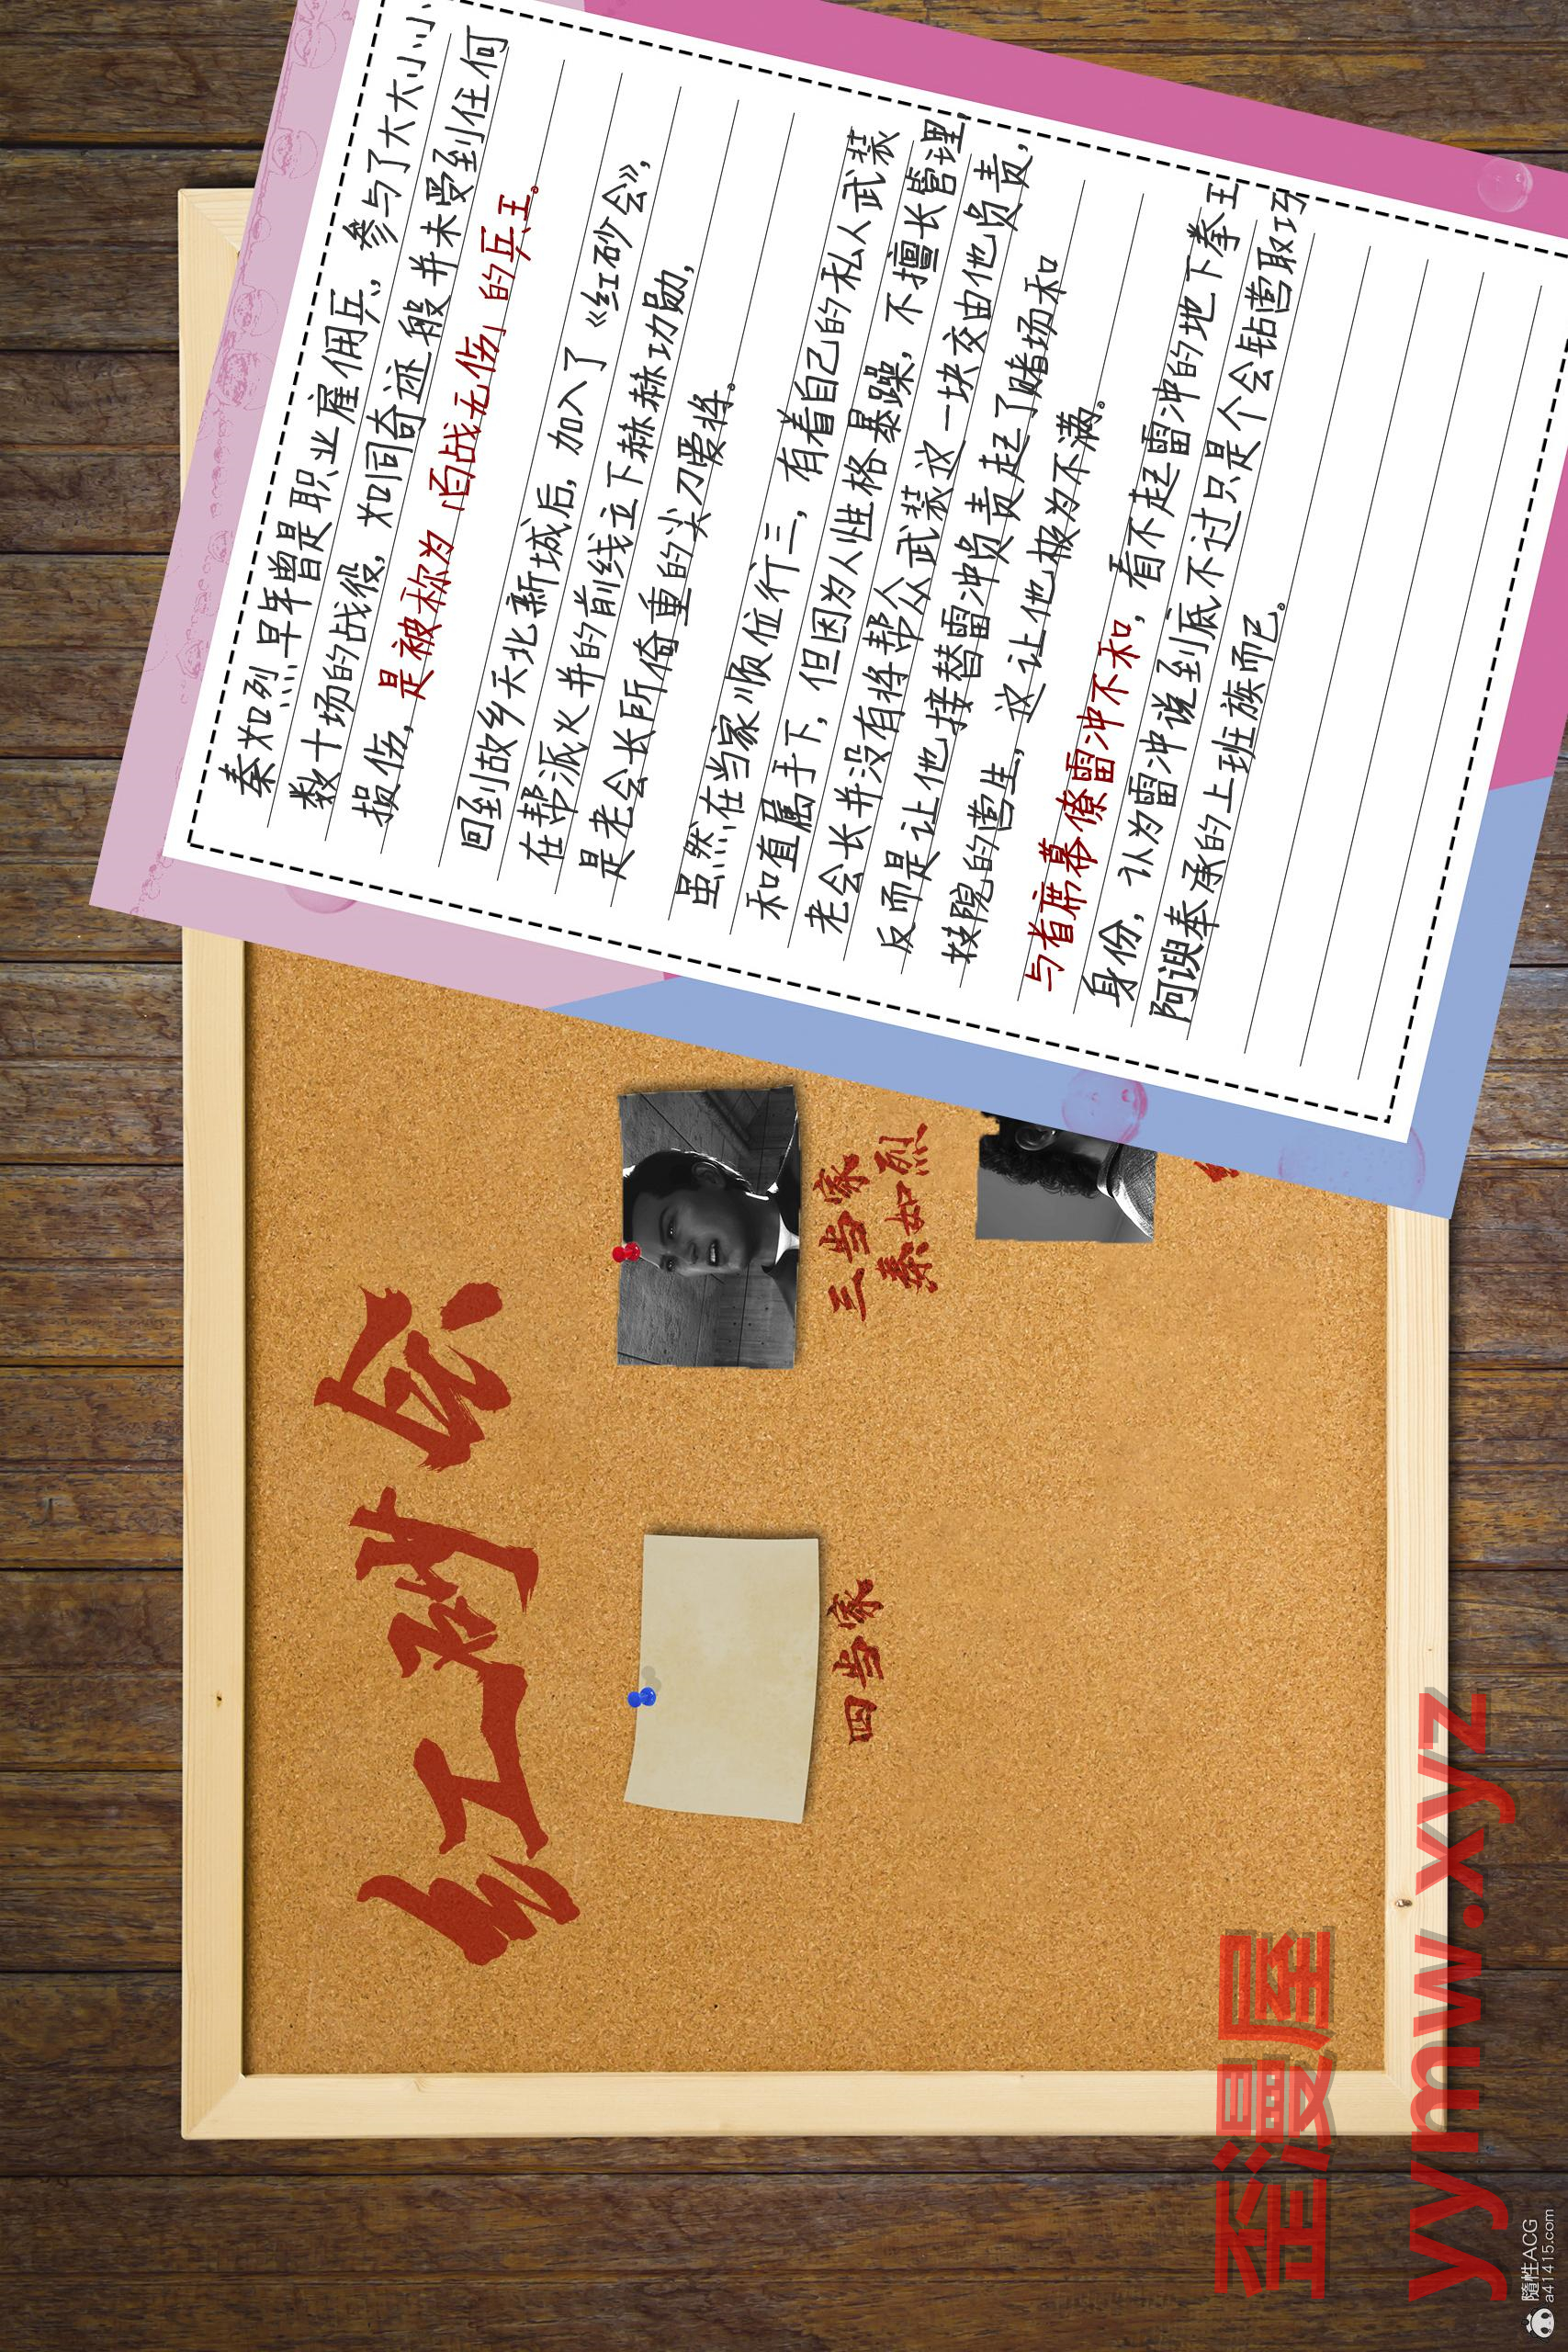 红砂会
四当家
三当家
秦如烈
秦如烈早年曾是职业雇佣兵，参与了大大小小
数十场的战役，如同奇迹般并未受到任何
损伤，是被称为「百战无伤」的兵王。
回到故乡天北新城后，加入了《红砂会》，
在帮派火并的前线立下赫赫功勋，
是老会长所倚重的尖刀爱将。
虽然在当家顺位行三，有着自己的私人武装
和直属手下，但因为人性格暴躁，不擅长管理，
老会长并没有将帮众武装这一块交由他负责，
反而是让他接替雷冲负责起了赌场和
技院的营生，这让他极为不满。
与首席幕僚雷冲不和，看不起雷冲的地下拳王
身份，认为雷冲说到底不过只是个会钻营取巧
阿谀奉承的上班族而已。
歪漫屋
yymw.xyz
隨性ACG
a41415.com